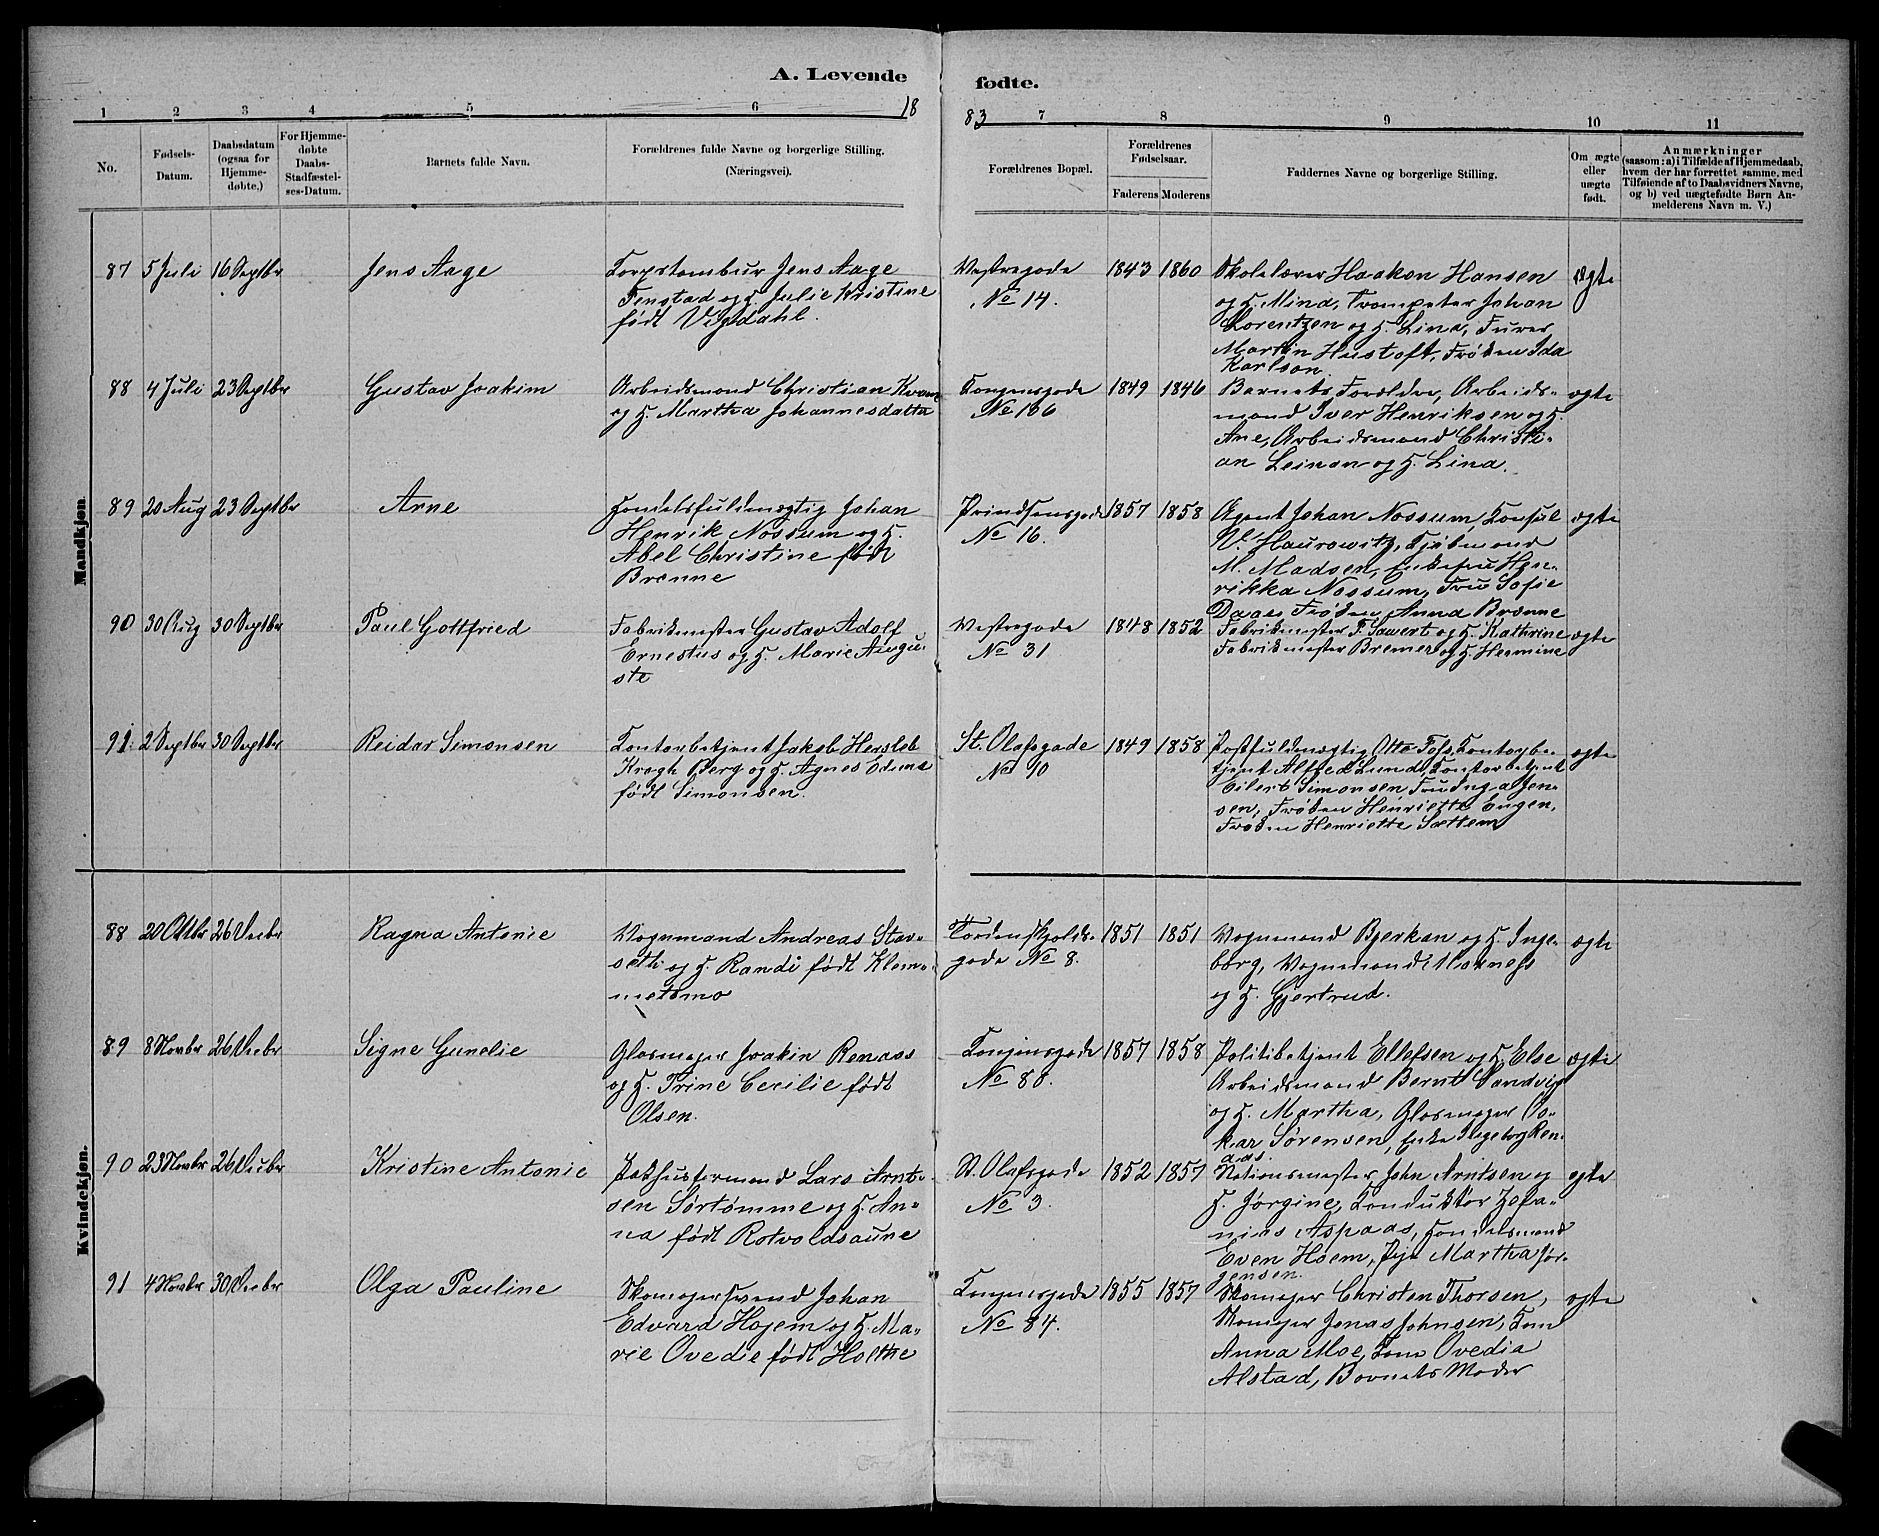 A. Levende fødte.
1883
1 2 3 4 5 6 7 8 9 10 11
No.
Fødsels-
Datum.
Daabsdatum
(ogsaa for
Hjemme-
døbte.)
For Hjemme-
døbte
Daabs-
Stadfæstel-
ses-Datum.
Barnets fulde Navn.
Forældrenes fulde Navne og borgerlige Stilling.
(Næringsvei).
Forældrenes Bopæl.
Forældrenes
Fødselsaar.
Faderens Moderens
Faddernes Navne og borgerlige Stilling.
Om ægte
eller
uægte
født.
Anmærkninger
(saasom: a) i Tilfælde af Hjemmedaab,
hvem der har forrettet samme, med
Tilføiende af to Daabsvidners Navne,
og b) ved uægtefødte Børn An-
melderens Navn m. V.)
Mandkjøn
87 5 Juli 16 Septbr Jens Aage
Corpstambur Jens Aage
Fenstad og H. Julie Kristine
født Vigdahl.
Vestregade
No 14.
1843 1860
Skolelærer Haakon Hansen
og H. Mina, Trompeter Johan
Lorentzen og H. Lina, Furer
Martin Hustoft, Frøken Ida
Karlson.
ægte
88 4 Juli 23 Septbr Gustav Joakim
Arbeidsmand Christian Kvam
og H. Marthea Johannesdatter
Kongensgade
No 106
1849 1846
Barnets Forældre, Arbeids-
mand Iver Henriksen og H.
Ane, Arbeidsmand Christi-
an Leinan og H. Lina.
ægte
89 20 Aug 23 Septbr Arne
Handelsfuldmægtig Johan
Henrik Nossum og H.
Abel Christine født
Brænne
Prindsensgade
No 16.
1857 1858
Agent Johan Nossum, Konsul
W. Haurowitz, Kjøbmand
M. Madsen, Enkefru Hen-
rikka Nossum, Frue Sofie
Daae, Frøken Anna Brænne
ægte
90 30 Aug 30 Septbr Paul Gottfried
Fabrikmester Gustav Adolf
Ernestus og H. Marie Augu-
ste
Vestregade
No 31
1848 1852
Fabrikmester F. Sawert og H. Kathrine
Fabrikmester Bremer og H. Hermine
ægte
91. 2 Septbr 30 Septbr Reidar Simonsen
Kontorbetjent Jakob Hersleb
Krogh Berg og H. Agnes Edine
født Simonsen.
St. Olafsgade
No 10
1849 1858
Postfuldmægtig Otto Foss, Kontorbe-
tjent Alfred Lund, Kontorbetjent
Eilert Simonsen Fru Inga Jen-
sen, Frøken Henriette Engen,
Frøken Henriette Sættem
ægte
Kvindekjøn.
88 20 Oktbr 26 Decbr Ragna Antonie
Vognmand Andreas Stav-
seth og H. Randi født Klem-
metsmo
Tordenskjolds-
gade No 8.
1851 1851
Vognmand Bjerkan og H. Inge-
borg, Vognmand Moxness
og H. Gjertrud.
ægte
89 8 Novbr 26 Decbr Signe Gunelie
Glasmager Joakin Renaas
og H. Trine Cecilie født
Olsen.
Kongensgade
No 80.
1857 1858
Politibetjent Ellefsen og H. Else
Arbeidsmand Bernt Sandvig
og H. Martha, Glasmager Os-
kar Sørensen, Enke Ingeborg Ren-
aas.
ægte
90 23 Novbr 26 Decbr Kristine Antonie
Pakhusformand Lars Arnt-
sen Sørtømme og H. An-
na født Rotvoldsaune
St. Olafsgade
No 3.
1852 1857
Stationsmester John Arntsen og
H. Jørgine, Konduktør Zefa-
nias Aspaas, Handelsmand
Even Hoem, Pige Marthea Jør-
gensen.
ægte
91 4 Novbr 30 Decbr Olga Pauline
Skomagersvend Johan
Edvard Hojem og H. Ma-
rie Ovedie født Holthe
Kongensgade
No 84.
1855 1857
Skomager Christen Thorsen,
Skomager Jonas Johnsen, Kone
Anna Moe, Kone Ovedia
Alstad, Barnets Moder
ægte